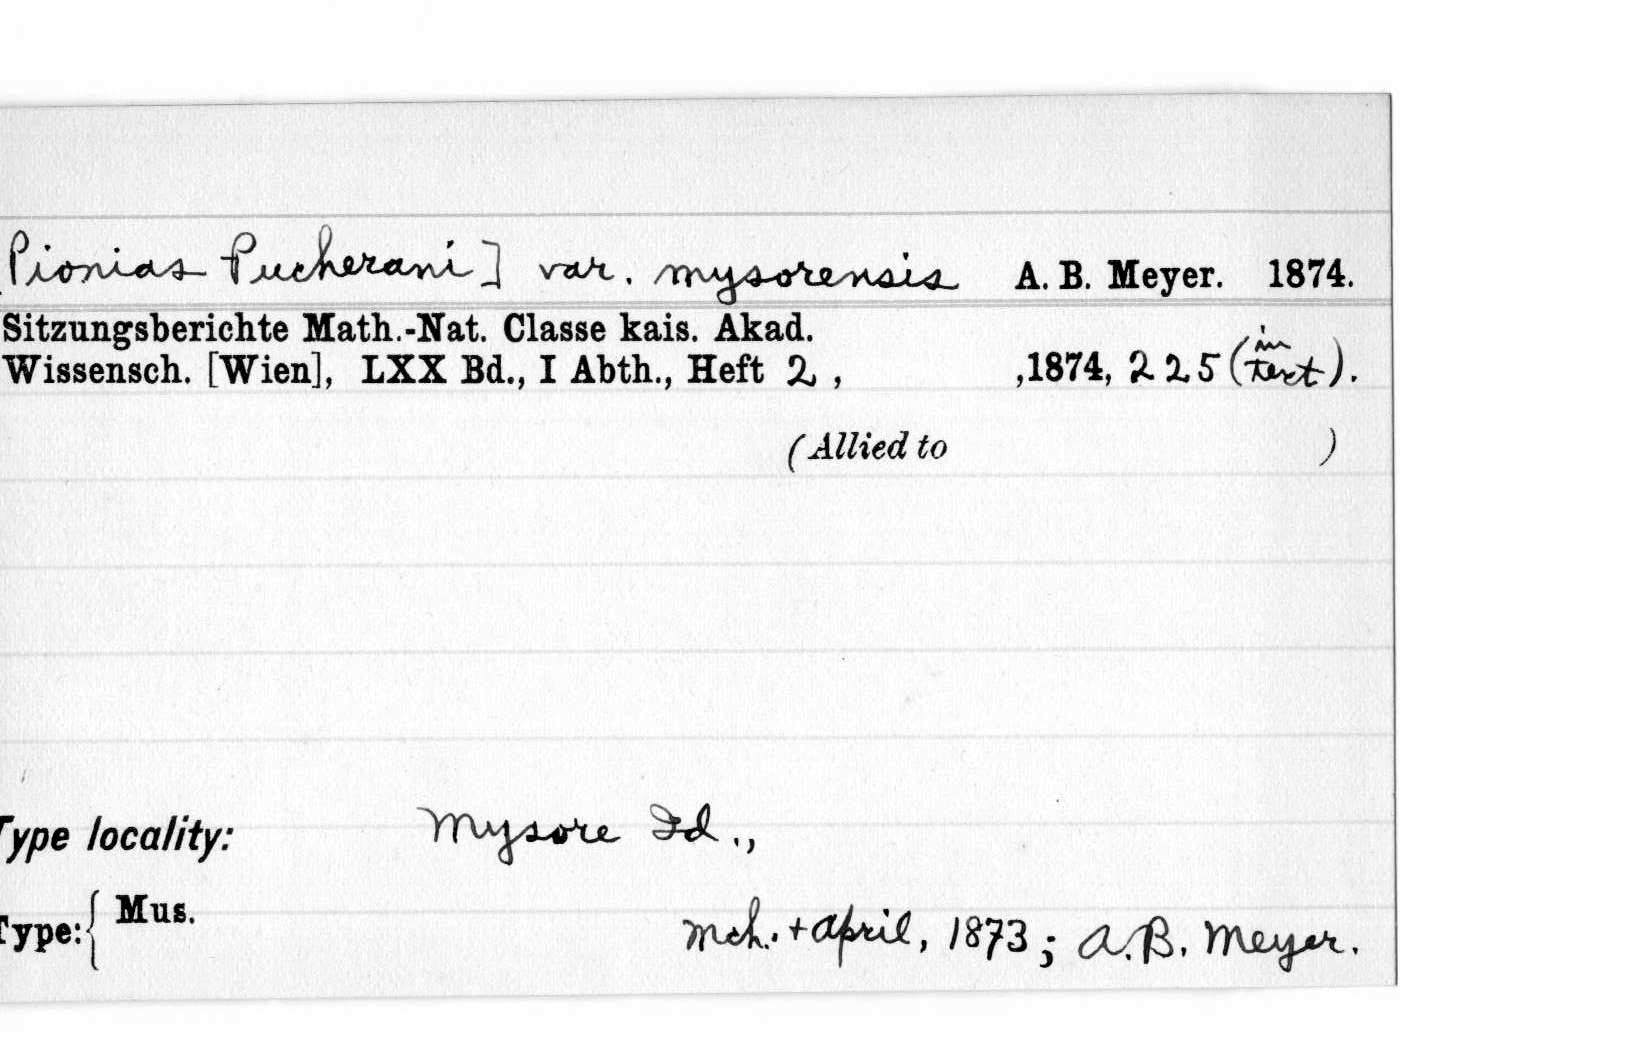 [Pionias Pucherani] var. mysorensis A. B. Meyer. 1874.
Sitzungsberichte Math.-Nat. Classe kais. Akad.
Wissensch. [Wien], LXX Bd., I Abth., Heft 2 , ,1874, 225 (in text).
(Allied to )
Type locality: Mysore Id.,
Type: { Mus.
Mch. + April, 1873; A.B. Meyer.